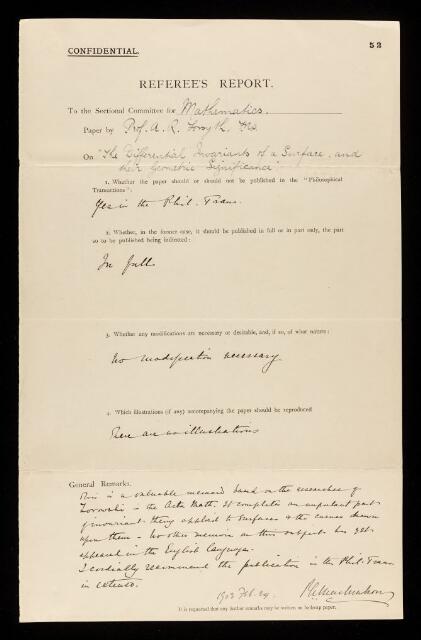 52
CONFIDENTIAL.
REFEREE'S REPORT.
To the Sectional Committee for Mathematics.
Paper by Prof. A. R. Forsyth, FRS.
On "The Differential Invariants of a Surface, and
their Geometric Significance"
1. Whether the paper should or should not be published in the "Philosophical
Transactions":
Yes in the Phil. Trans.
2. Whether, in the former case, it should be published in full or in part only, the part
so to be published being indicated:
In full
3. Whether any modifications are necessary or desirable, and, if so, of what nature:
No modification necessary
4. Which illustrations (if any) accompanying the paper should be reproduced
There are no illustrations
General Remarks.
This is a valuable memoir based on the researches of
Zorawski in the Acta Math. It completes an important part
of invariant theory applied to surfaces & the curves drawn
upon them - No other memoir on this subject has yet
appeared in the English language.
I cordially recommend the publication in the Phil. Trans
in extenso.
1903 Feb. 24. P.A. MacMahon
It is requested that any further remarks may be written on foolscap paper.